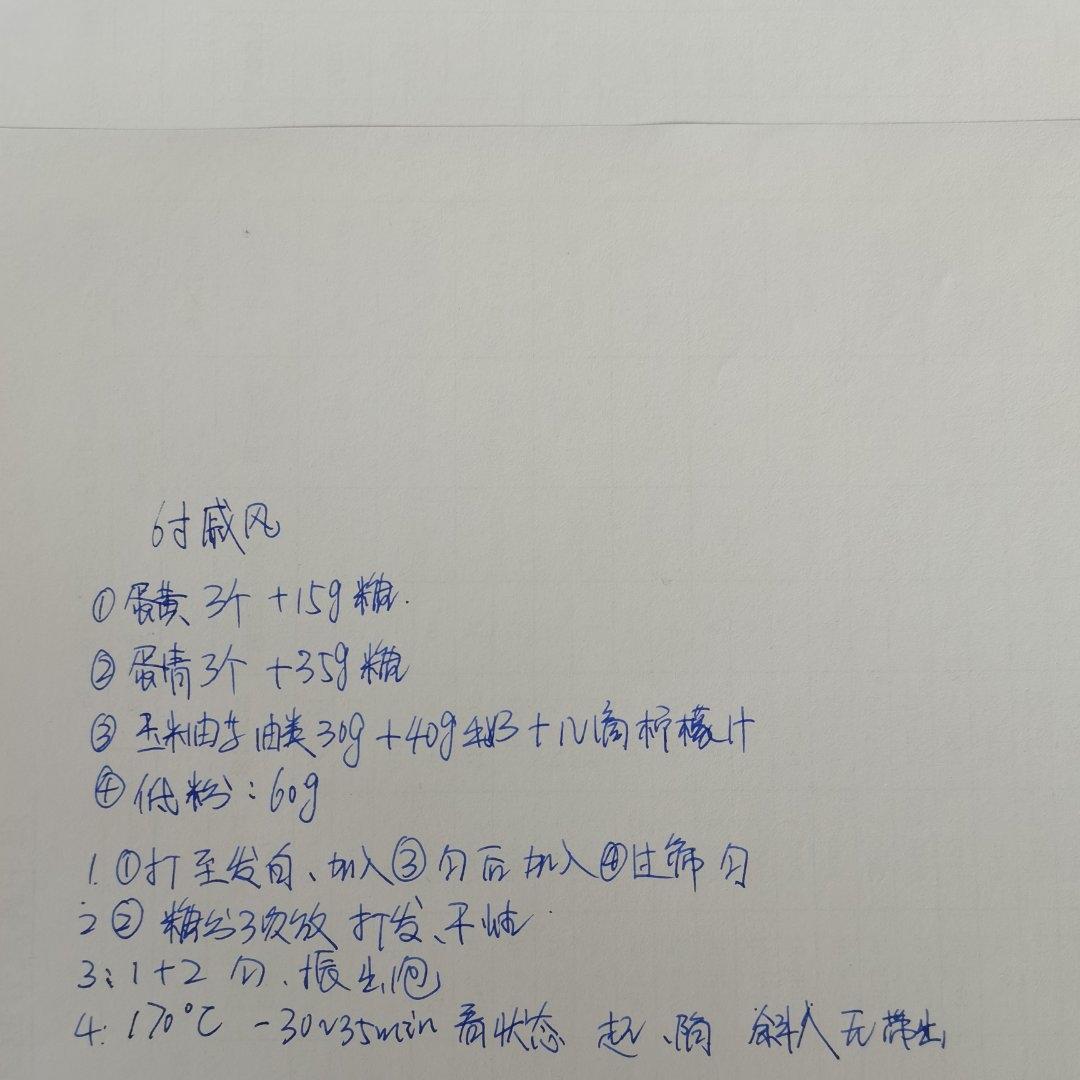 6寸戚风
①蛋黄3个+15g糖.
②蛋清3个+35g糖
③玉米油等油类30g+40g牛奶+几滴柠檬汁
④低粉:60g
1.①打至发白、加入③匀后加入④过筛匀
2②糖分3次放 打发、干性.
3:1+2匀.振出泡
4:170℃-30~35min看状态 起、陷 入无带出